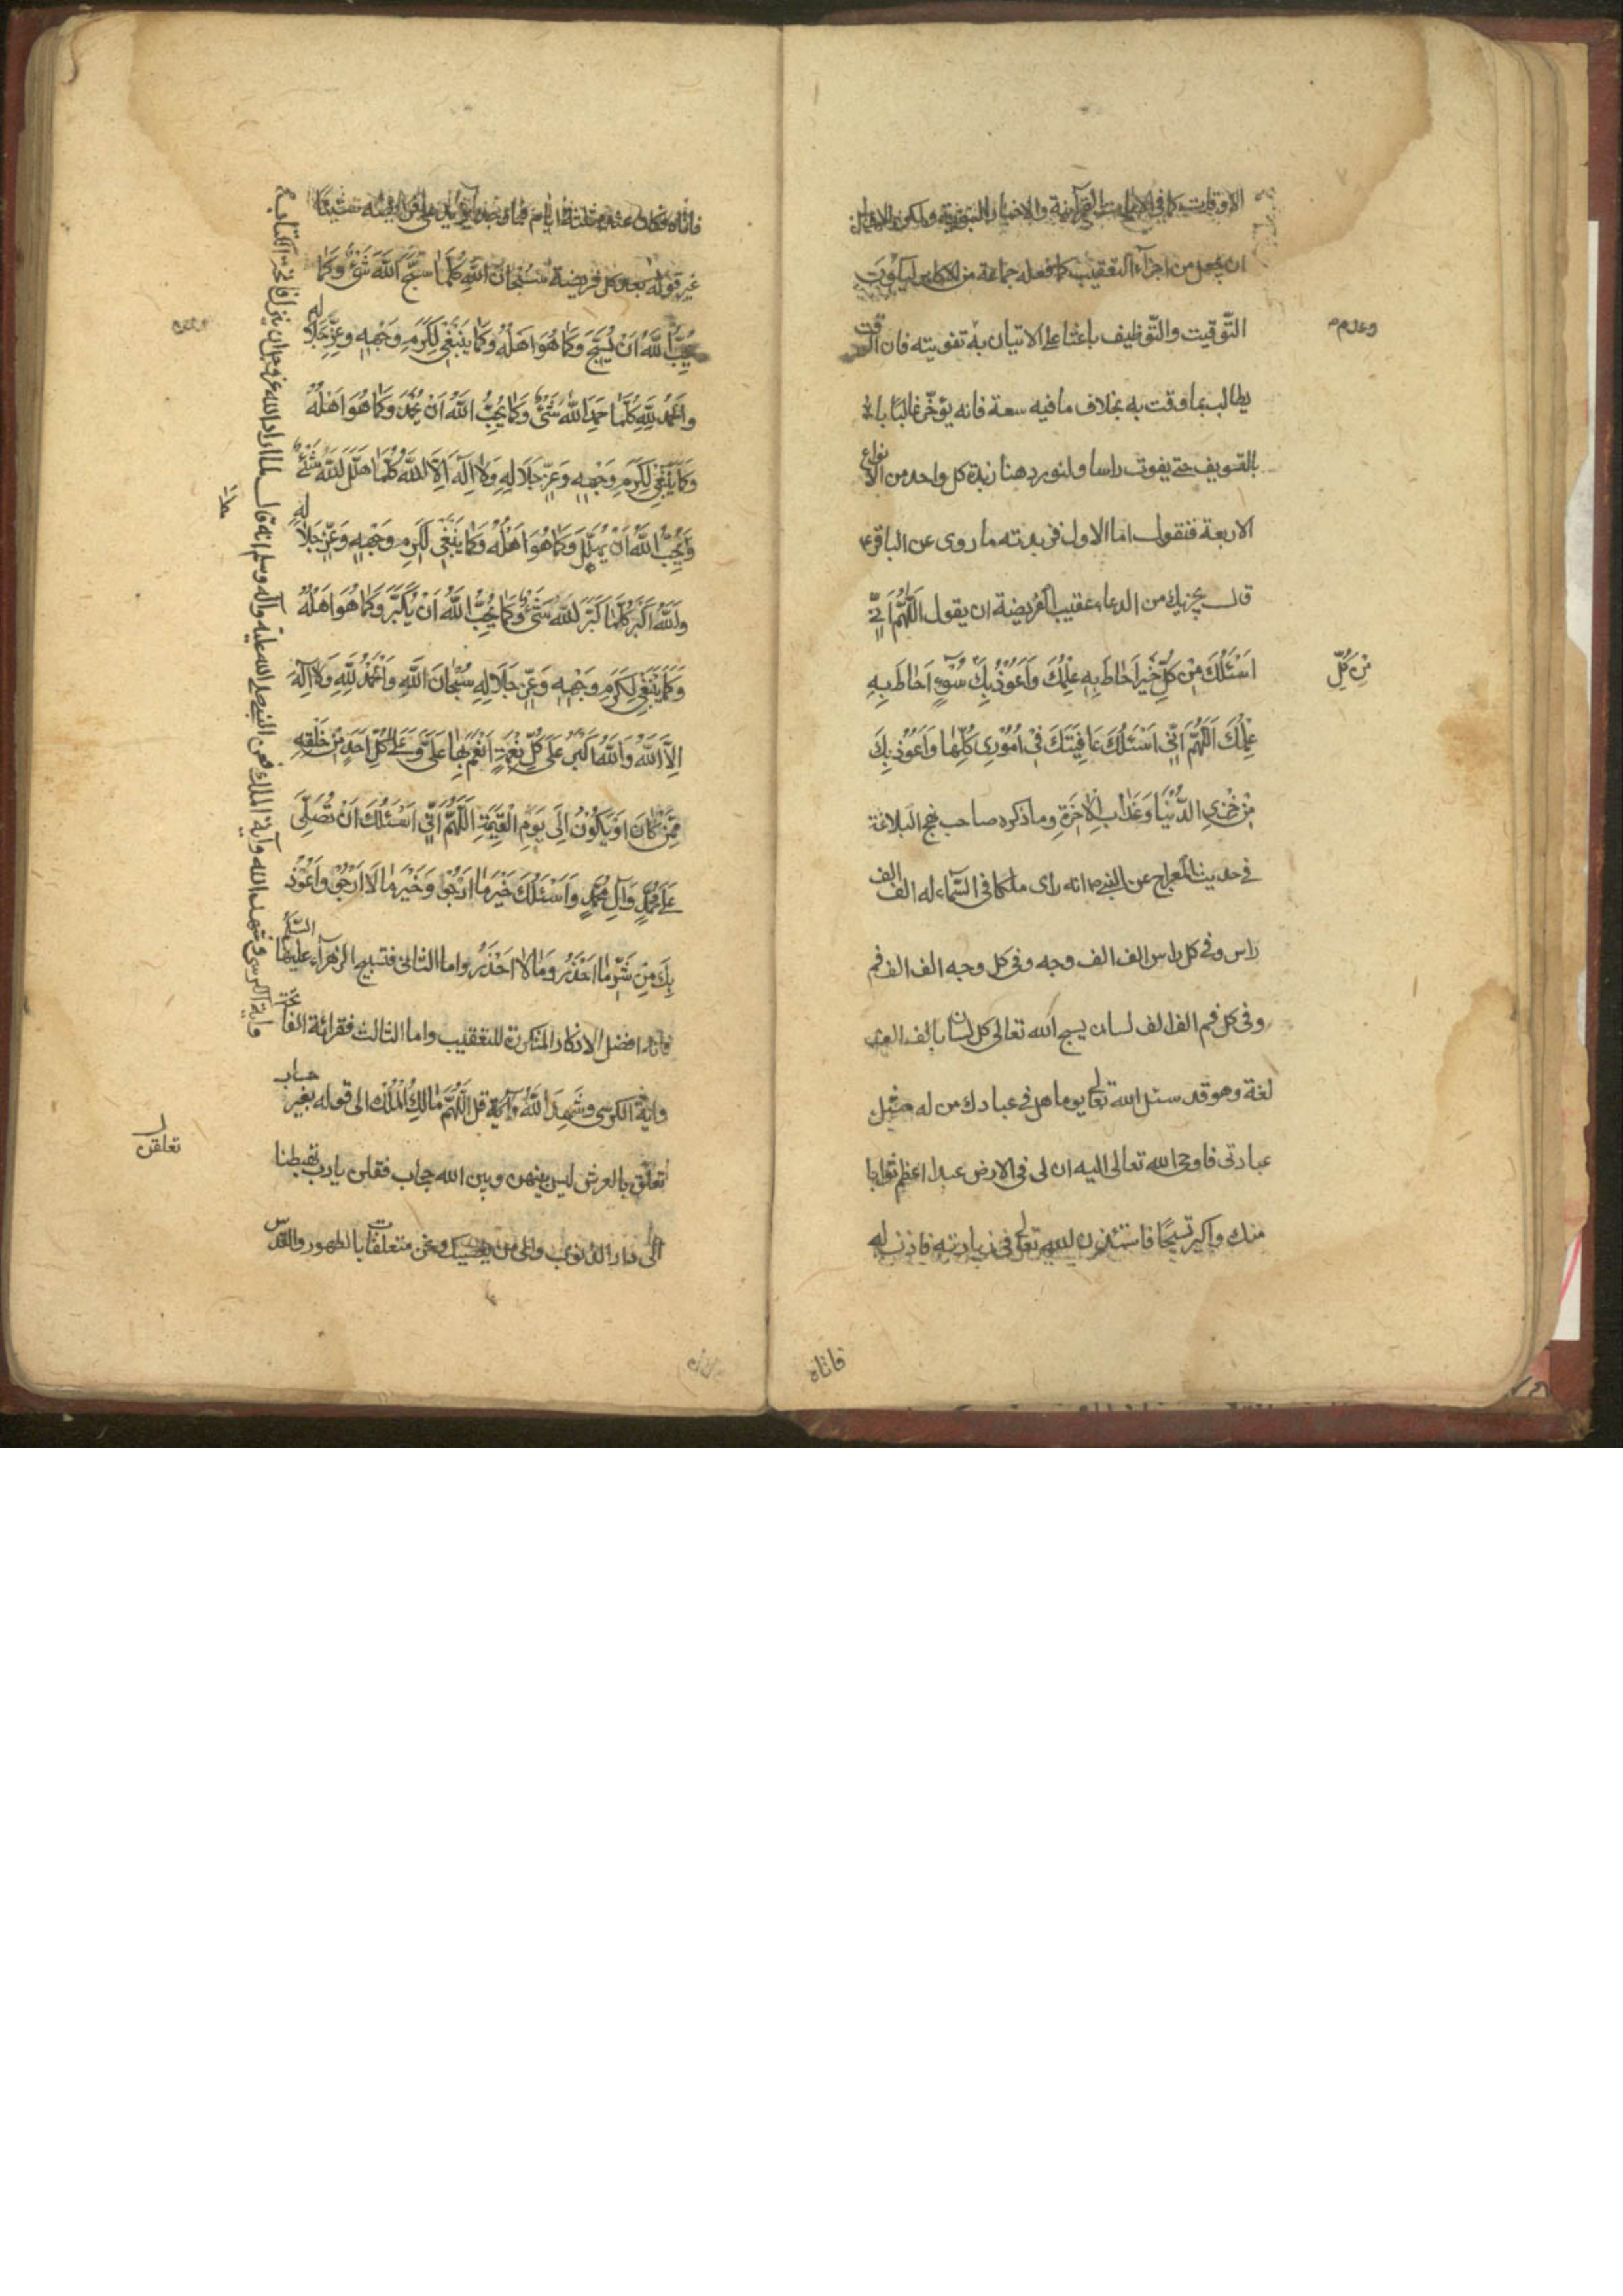 الاوقات كما فى الايات القرآنية والاخبار النبوية ولكن الاولى
ان يجعل من اجزاء التعقيب كما فعله جماعة من الاكابر ليكون
التّوقيت والتّوظيف باعثا على الاتيان به تفويته فان الوقت
وعدم
يطالب بما وقت به بخلاف ما فيه سعة فانه يؤخّر غالبًا
بالتسويف حتى يفوت راسا ولنورد هنا زبدة كل واحد من الانواع
الاربعة فنقول اما الاول فزبدته ما روى عن الباقر ع
قال يجزيك من الدعاء عقيب الفريضة ان يقول اَللّٰهُمَّ اِنّٖى
اَسْئَلُكَ مِنْ كُلِّ خَيْرٍ اَحٰاطَ بِهِ عِلْمُكَ وَاَعُوْذُ بِكَ سُوْءٍ اَحٰاطَ بِهِ
مِنْ كُلِّ
عِلْمُكَ اَللّٰهُمَّ اِنّٖى اَسْئَلُكَ عَافِيَتَكَ فٖى اُمُوْرٖى كُلِّهٰا وَاَعُوْذُ بِكَ
مِنْ خِزْىِ الدُّنْيٰا وَعَذٰابِ الْاٰخِرَةِ وما ذكره صاحب نهج البلاغة
فى حديث المعراج عن النبى ص انه راى ملكا فى السّماء له الف الف
راس وفى كل راس الف الف وجه وفى كل وجه الف الف فم
وفى كل فم الف الف لسان يسبح الله تعالى كل لسان بالف الف
لغة وهو قد سئل الله تعالى يوما هل فى عبادك من له مثل
عبادتى فاوحى الله تعالى اليه ان لى فى الارض عبدا اعظم ثوابا
منك واكثر تسبيحًا فاستئذن الله تعالى فى زيارته فاذن له
فاتاه
فاتاه فكان عنده ثلثة ايام فما وجده يزيد على فرايضه شيئا
غير قوله بعد كل فريضة سُبْحَانَ اللّٰهِ كُلَّمٰا سَبَّحَ اللّٰهَ شَىْءٌ وَكَمٰا
يُحِبُّ اللّٰهُ اَنْ يُسَبَّحَ وَكَمٰا هُوَ اَهْلُهُ وَكَمٰا يَنْبَغٖى لِكَرَمِ وَجْهِهٖ وَعِزِّ جَلَالِهِ
وَالْحَمْدُ لِلّٰهِ كُلَّمٰا حَمِدَ اللّٰهَ شَىْءٌ وَكَمٰا يُحِبُّ اللّٰهُ اَنْ يُحْمَدَ وَكَمٰا هُوَ اَهْلُهُ
وَكَمٰا يَنْبَغٖى لِكَرَمِ وَجْهِهٖ وَعِزِّ جَلَالِهِ وَلَا اِلٰهَ اِلَّا اللّٰهُ كُلَّمٰا هَلَّلَ اللّٰهَ شَىْءٌ
وَكَمٰا يُحِبُّ اللّٰهُ اَنْ يُهَلَّلَ وَكَمٰا هُوَ اَهْلُهُ وَكَمٰا يَنْبَغٖى لِكَرَمِ وَجْهِهٖ وَعِزِّ جَلَالِهِ
وَاللّٰهُ اَكْبَرُ كُلَّمٰا كَبَّرَ اللّٰهَ شَىْءٌ وَكَمٰا يُحِبُّ اللّٰهُ اَنْ يُكَبَّرَ وَكَمٰا هُوَ اَهْلُهُ
وَكَمٰا يَنْبَغٖى لِكَرَمِ وَجْهِهٖ وَعِزِّ جَلَالِهِ سُبْحٰانَ اللّٰهِ وَالْحَمْدُ لِلّٰهِ وَلَا اِلٰهَ
اِلَّا اللّٰهُ وَاللّٰهُ اَكْبَرُ عَلٰى كُلِّ نِعْمَةٍ اَنْعَمَ بِهٰا عَلَىَّ وَعَلٰى كُلِّ اَحَدٍ مِنْ خَلْقِهِ
مِمَّنْ كٰانَ اَوْ يَكُوْنُ اِلٰى يَوْمِ الْقِيٰمَةِ اَللّٰهُمَّ اِنّٖى اَسْئَلُكَ اَنْ تُصَلِّىَ
عَلٰى مُحَمَّدٍ وَآلِ مُحَمَّدٍ وَاَسْئَلُكَ خَيْرَ مٰا اَرْجُوْ وَخَيْرَ مٰا لَا اَرْجُوْ وَاَعُوْذُ
بِكَ مِنْ شَرِّ مٰا اَحْذَرُ وَمٰا لَا اَحْذَرُ واما الثانى فتسبيح الزهرآء عليها السّلم
فانه افضل الاذكار المتكررة للتعقيب واما الثالث فقرائة الفاتحة
واية الكرسى وشَهِدَ اللّٰهُ وآية قل اللّٰهُمَّ مٰالِكَ الْمُلْكِ الى قوله بغير حساب
تعلّق بالعرش ليس بينهن وبين الله حجاب فقلن يارب تهبطنا
تعلقن
الى دار الذنوب والى من يعصيك ونحن متعلقات بالطهور والقدس
لما اراد الله عز وجل ان ينزل فاتحة الكتاب
فعن النبى صلى الله عليه وآله وسلم انه قال
وآية الكرسى وشهد الله وآية الملك